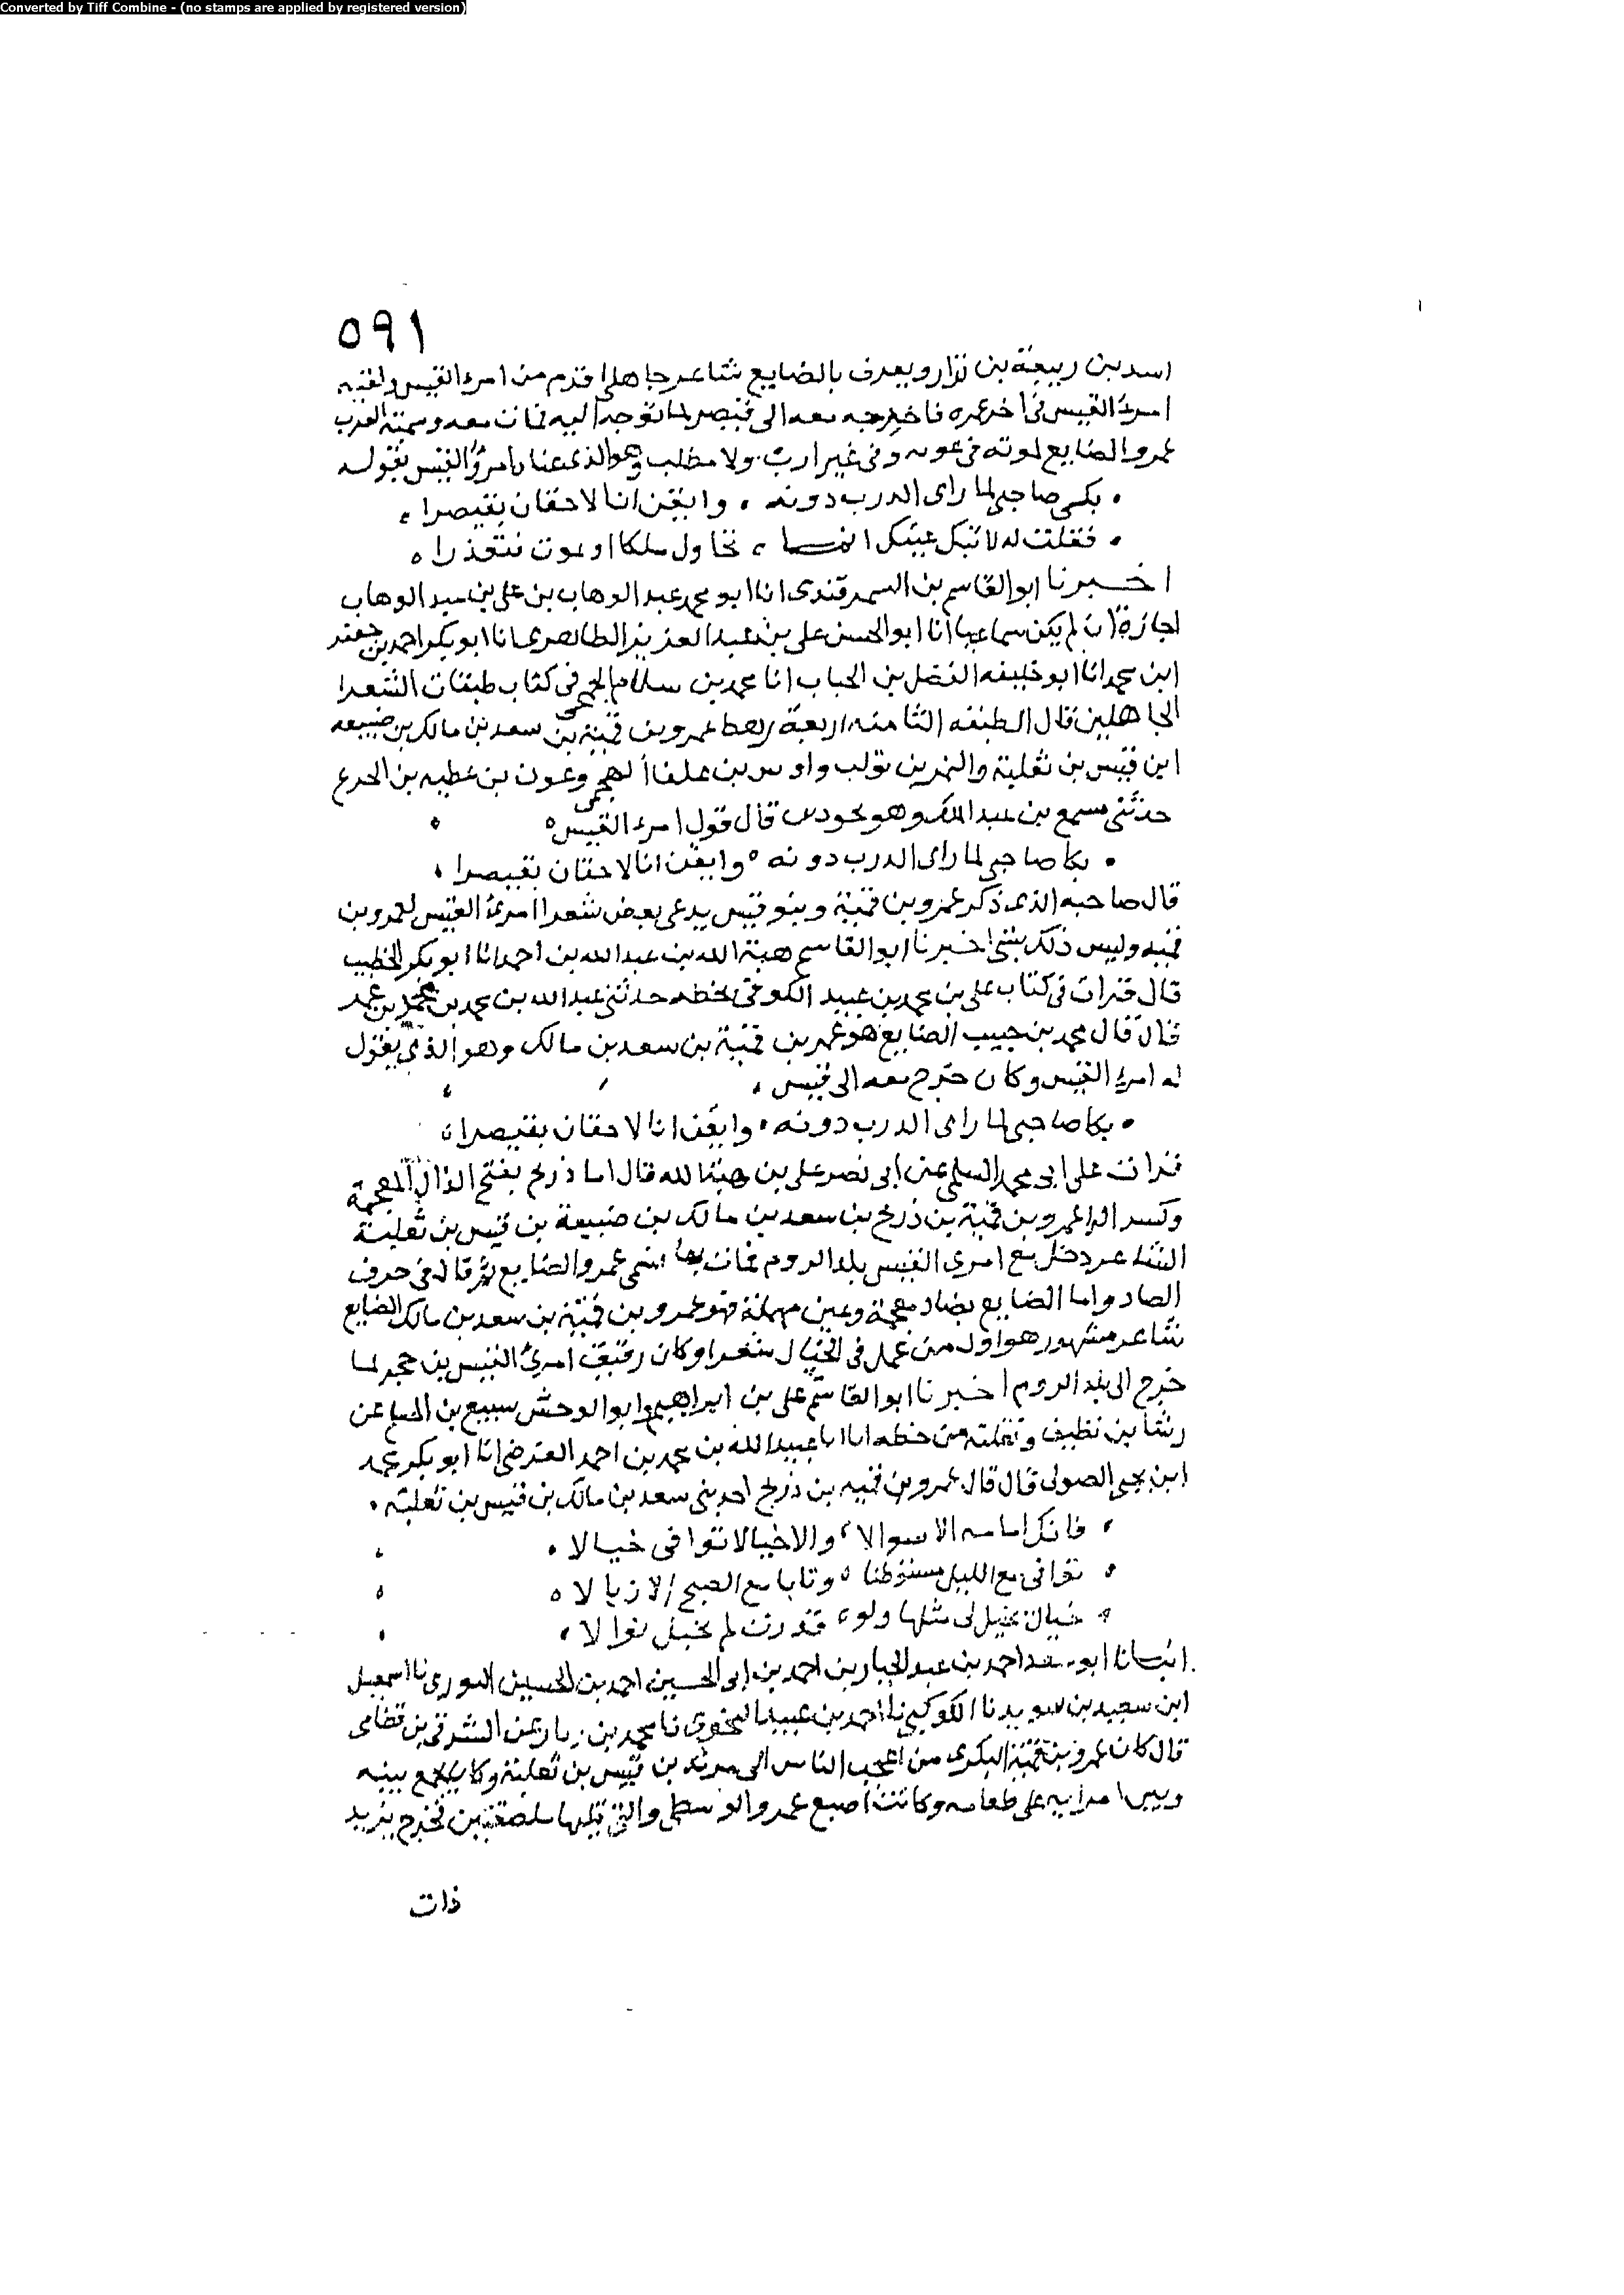 Converted by Tiff Combine - (no stamps are applied by registered version)
٥٩١
اسد بن ربيعة بن نزار ويعرف بالضايع شاعر جاهلي اقدم من امرئ القيس ولقيه
امرئ القيس في اخر عمره فاخرجه معه الى قيصر لما توجه اليه فمات معه وسمته العرب
عمرو الضايع لموته في غربه وفي غير ارب ولا مطلب وهو الذي عناه امرؤ القيس بقوله
بكى صاحبي لما راى الدرب دونه وايقن انا لاحقان بقيصرا
فقلت له لا تبك عينك انما نحاول ملكا او نموت فنعذرا
اخبرنا ابو القاسم بن السمرقندي انا ابو محمد عبد الوهاب بن علي بن عبد الوهاب
اجازة ان لم يكن سماعا انا ابو الحسن علي بن عبد العزيز الطاهري انا ابو بكر احمد بن جعفر
ابن محمد انا ابو خليفه الفضل بن الحباب انا محمد بن سلام الجمحي في كتاب طبقات الشعرا
الجاهلين قال الطبقه الثامنه اربعة رهط عمرو بن قميئة بن سعد بن مالك بن ضبيعه
ابن قيس بن ثعلبة والنمر بن تولب واوس بن علفا الهجيمي وعون بن عطيه بن الخرع
حدثني مسمع بن عبد الملك وهو قال قول امرء القيس
بكا صاحبي لما راى الدرب دونه وايقن انا لاحقان بقيصرا
قال صاحبه الذي ذكر عمرو بن قميئة وبنو قيس يدعى بعض شعرا امرئ القيس لعمرو بن
قميه وليس ذلك بشئ اخبرنا ابو القاسم هبة الله بن عبد الله بن احمد انا ابو بكر الخطيب
قال قرات في كتاب علي بن محمد بن عبيد الكوفي بخطه حدثني عبد الله بن محمد بن
قال قال محمد بن حبيب الضايع هو عمرو بن قميئة بن سعد بن مالك وهو الذي يقول
له امرئ القيس وكان خرج معه الى قيس
بكا صاحبي لما راى الدرب دونه وايقن انا لاحقان بقيصرا
قرات على ابي محمد السلمي عن ابي نصر علي بن هبة الله قال اما ذريح بفتح الذال المعجمة
وكسر الرا عمرو بن قميئة بن ذريح بن سعد بن مالك بن ضبيعة بن قيس بن ثعلبة
الشاعر دخل مع امرئ القيس بلد الروم فمات بها فسمى عمرو الضايع ثم قال في حرف
الصاد واما الضايع بضاد معجمة وعين مهملة فهو عمرو بن قميئة بن سعد بن مالك الضايع
شاعر مشهور هو اول من عمل في الخيال شعرا وكان رفيق امرئ القيس بن حجر لما
خرج الى بلد الروم اخبرنا ابو القاسم علي بن ابراهيم وابو الوحش سبيع بن المسلم عن
رشا بن نظيف ونقلته من خطه انا عبيد الله بن محمد بن احمد الفرضي انا ابو بكر محمد
ابن يحيى الصولي قال قال عمرو بن قميه بن ذريح احد بني سعد بن مالك بن قيس بن ثعلبة
نانك امامه الا سوالا والا خيالا توافي خيالا
توافي مع الليل وتابا مع الصبح الا زيالا
خيال يخيل لى مثلها ولو قدرت لم يخيل نوالا
انبانا ابو سعد احمد بن عبد الجبار بن احمد بن ابي الحسين احمد بن الحسين نا اسمعيل
ابن سعيد بن سويد نا الكوكبي نا احمد بن عبيد النحوي نا محمد بن زياد عن الشرقي بن قطامى
قال كان عمرو بن قميئة البكري من اعجب الناس الى مرثد بن قيس بن ثعلبة وكان يجمع بينه
وبين امراته على طعامه وكانت اصبع عمرو الوسطى والتي تليها ملصقتين فخرج يريد
ذات